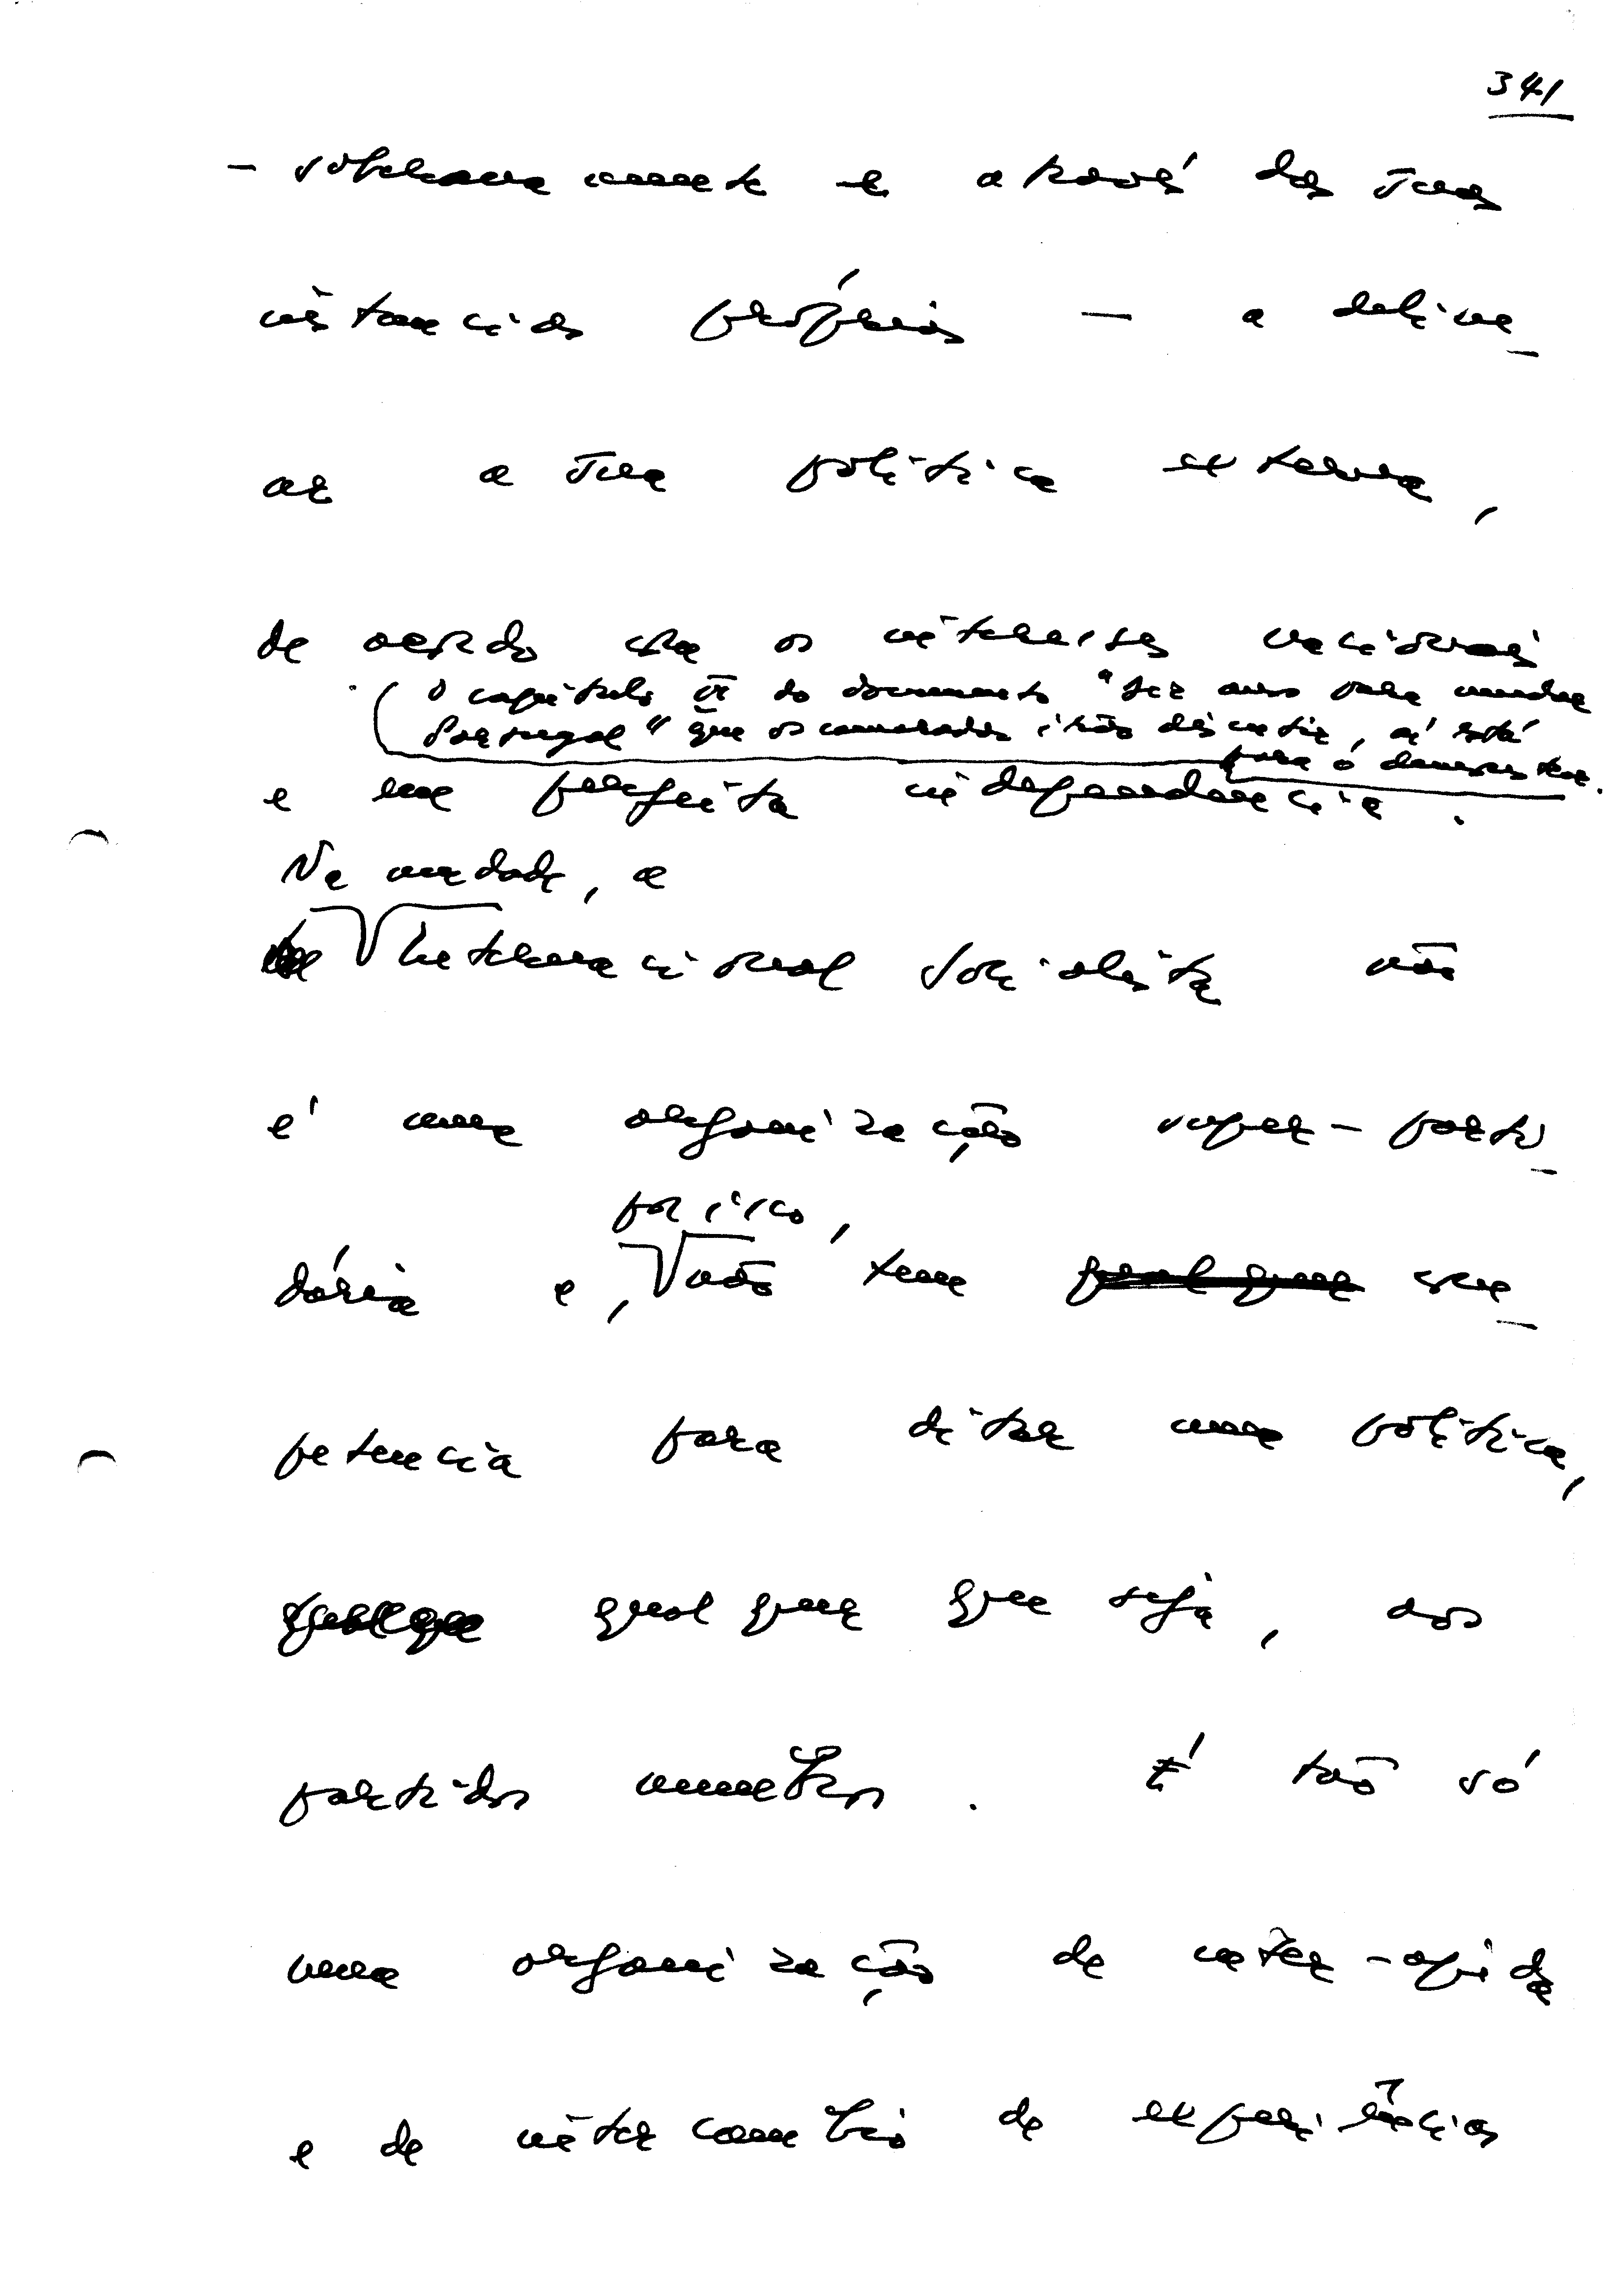 341
- soberanamente e através das suas
instancias próprias — a defini_
ar a sua politica externa,
de acordo com os interesses nacionais
(O capitulo VI do documento "Dez anos para mudar
Portugal" que os camaradas irão discutir, aí está
para o demonstrar.
e em perfeita independencia.
Na verdade, a
Internacional Socialista não
é uma organização super-parti_
por isso,
dária e, não tem qualquer com_
petencia para ditar uma politica,
qualquer que seja, aos
partidos membros. É tão só
uma organização de inter-ajuda
e de intercambio de experiências